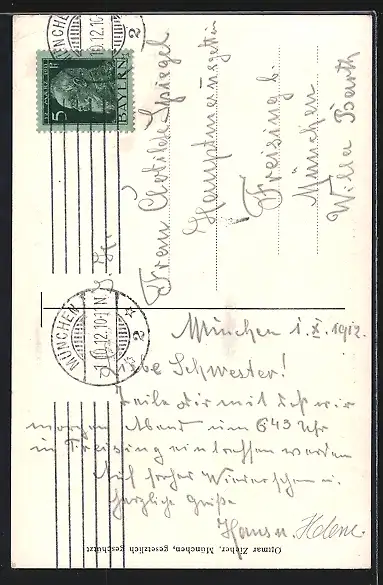 BAYERN
5
MÜNCHEN
1.10.12.10-11N
2
Frau Clotilde Spiegel
Hauptmannsgattin
Freising b.
München
Villa Barth
München 1.X.1912.
Liebe Schwester!
Teile Dir mit daß wir
morgen Abend um 6 43 Uhr
in Freising eintreffen werden
Auf frohes Wiedersehen u.
herzliche Grüße
Hans u. Helene
Ottmar Zieher, München, gesetzlich geschützt